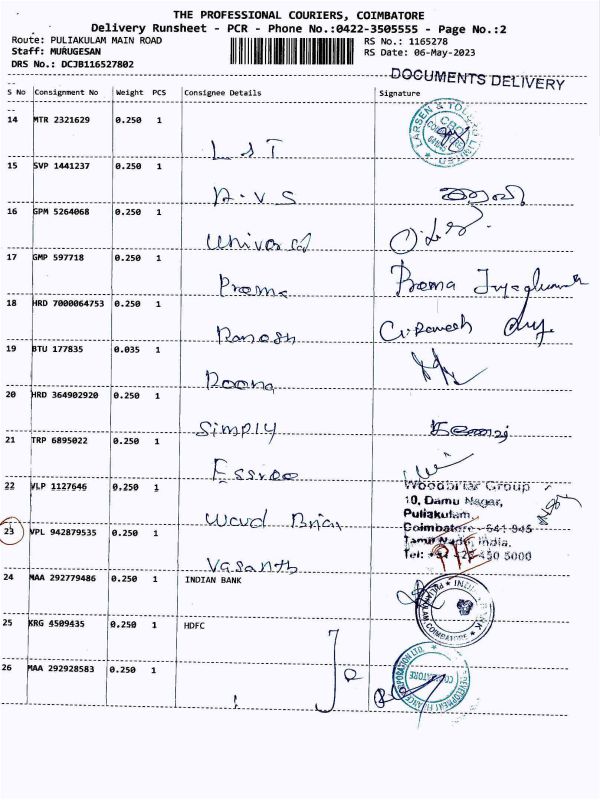 THE PROFESSIONAL COURIERS, COIMBATORE
Delivery Runsheet - PCR - Phone No.:0422-3505555 - Page No.:2
Route: PULIAKULAM MAIN ROAD RS No.: 1165278
Staff: MURUGESAN RS Date: 06-May-2023
DRS No.: DCJB116527802
DOCUMENTS DELIVERY
S No Consignment No Weight PCS Consignee Details Signature
14 MTR 2321629 0.250 1
LARSEN & TOUBRO LIMITED
L S T
15 SVP 1441237 0.250 1
A.V.S
16 GPM 5264068 0.250 1
Universal
17 GMP 597718 0.250 1
Prema Prema
18 HRD 7000064753 0.250 1
Ramesh C.Ramesh
19 BTU 177835 0.035 1
Poona
20 HRD 364902920 0.250 1
Simply
21 TRP 6895022 0.250 1
Essree
22 VLP 1127646 0.250 1
Woodbriar Group
10, Damu Nagar,
Puliakulam,
Coimbatore - 641 045
Tamil Nadu, India.
Tel: +91 422 450 5000
Wood Briar
23 VPL 942879535 0.250 1
Vasanth
24 MAA 292779486 0.250 1 INDIAN BANK
COIMBATORE
25 KRG 4509435 0.250 1 HDFC
26 MAA 292928583 0.250 1